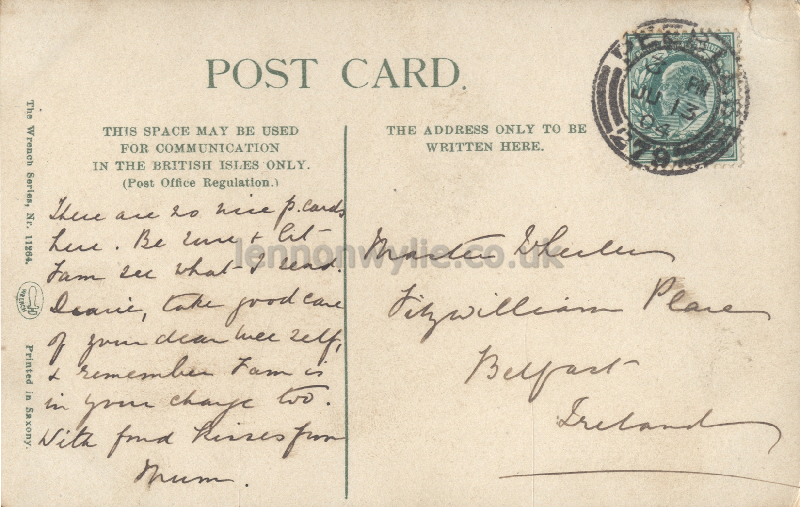 POST CARD.
THIS SPACE MAY BE USED
FOR COMMUNICATION
IN THE BRITISH ISLES ONLY.
(Post Office Regulation.)
There are no nice p. cards
here. Be sure & let
Fam see what I send.
Dearie, take good care
of your dear wee self,
& remember Fam is
in your charge too.
With fond kisses from
Mum.
THE ADDRESS ONLY TO BE
WRITTEN HERE.
Master Wheeler
Fitzwilliam Place
Belfast
Ireland
PM
JU 13
04
279
The Wrench Series, Nr. 11264.
WRENCH
Printed in Saxony.
lennonwylie.co.uk